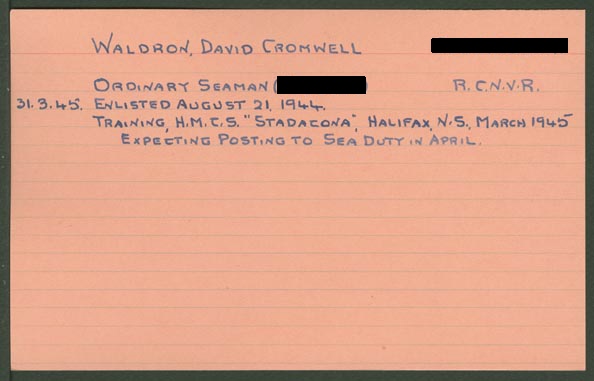 WALDRON, DAVID CROMWELL
ORDINARY SEAMAN ( ) R.C.N.V.R.
31.3.45. ENLISTED AUGUST 21, 1944.
TRAINING, H.M.C.S. "STADACONA", HALIFAX, N.S., MARCH 1945
EXPECTING POSTING TO SEA DUTY IN APRIL.